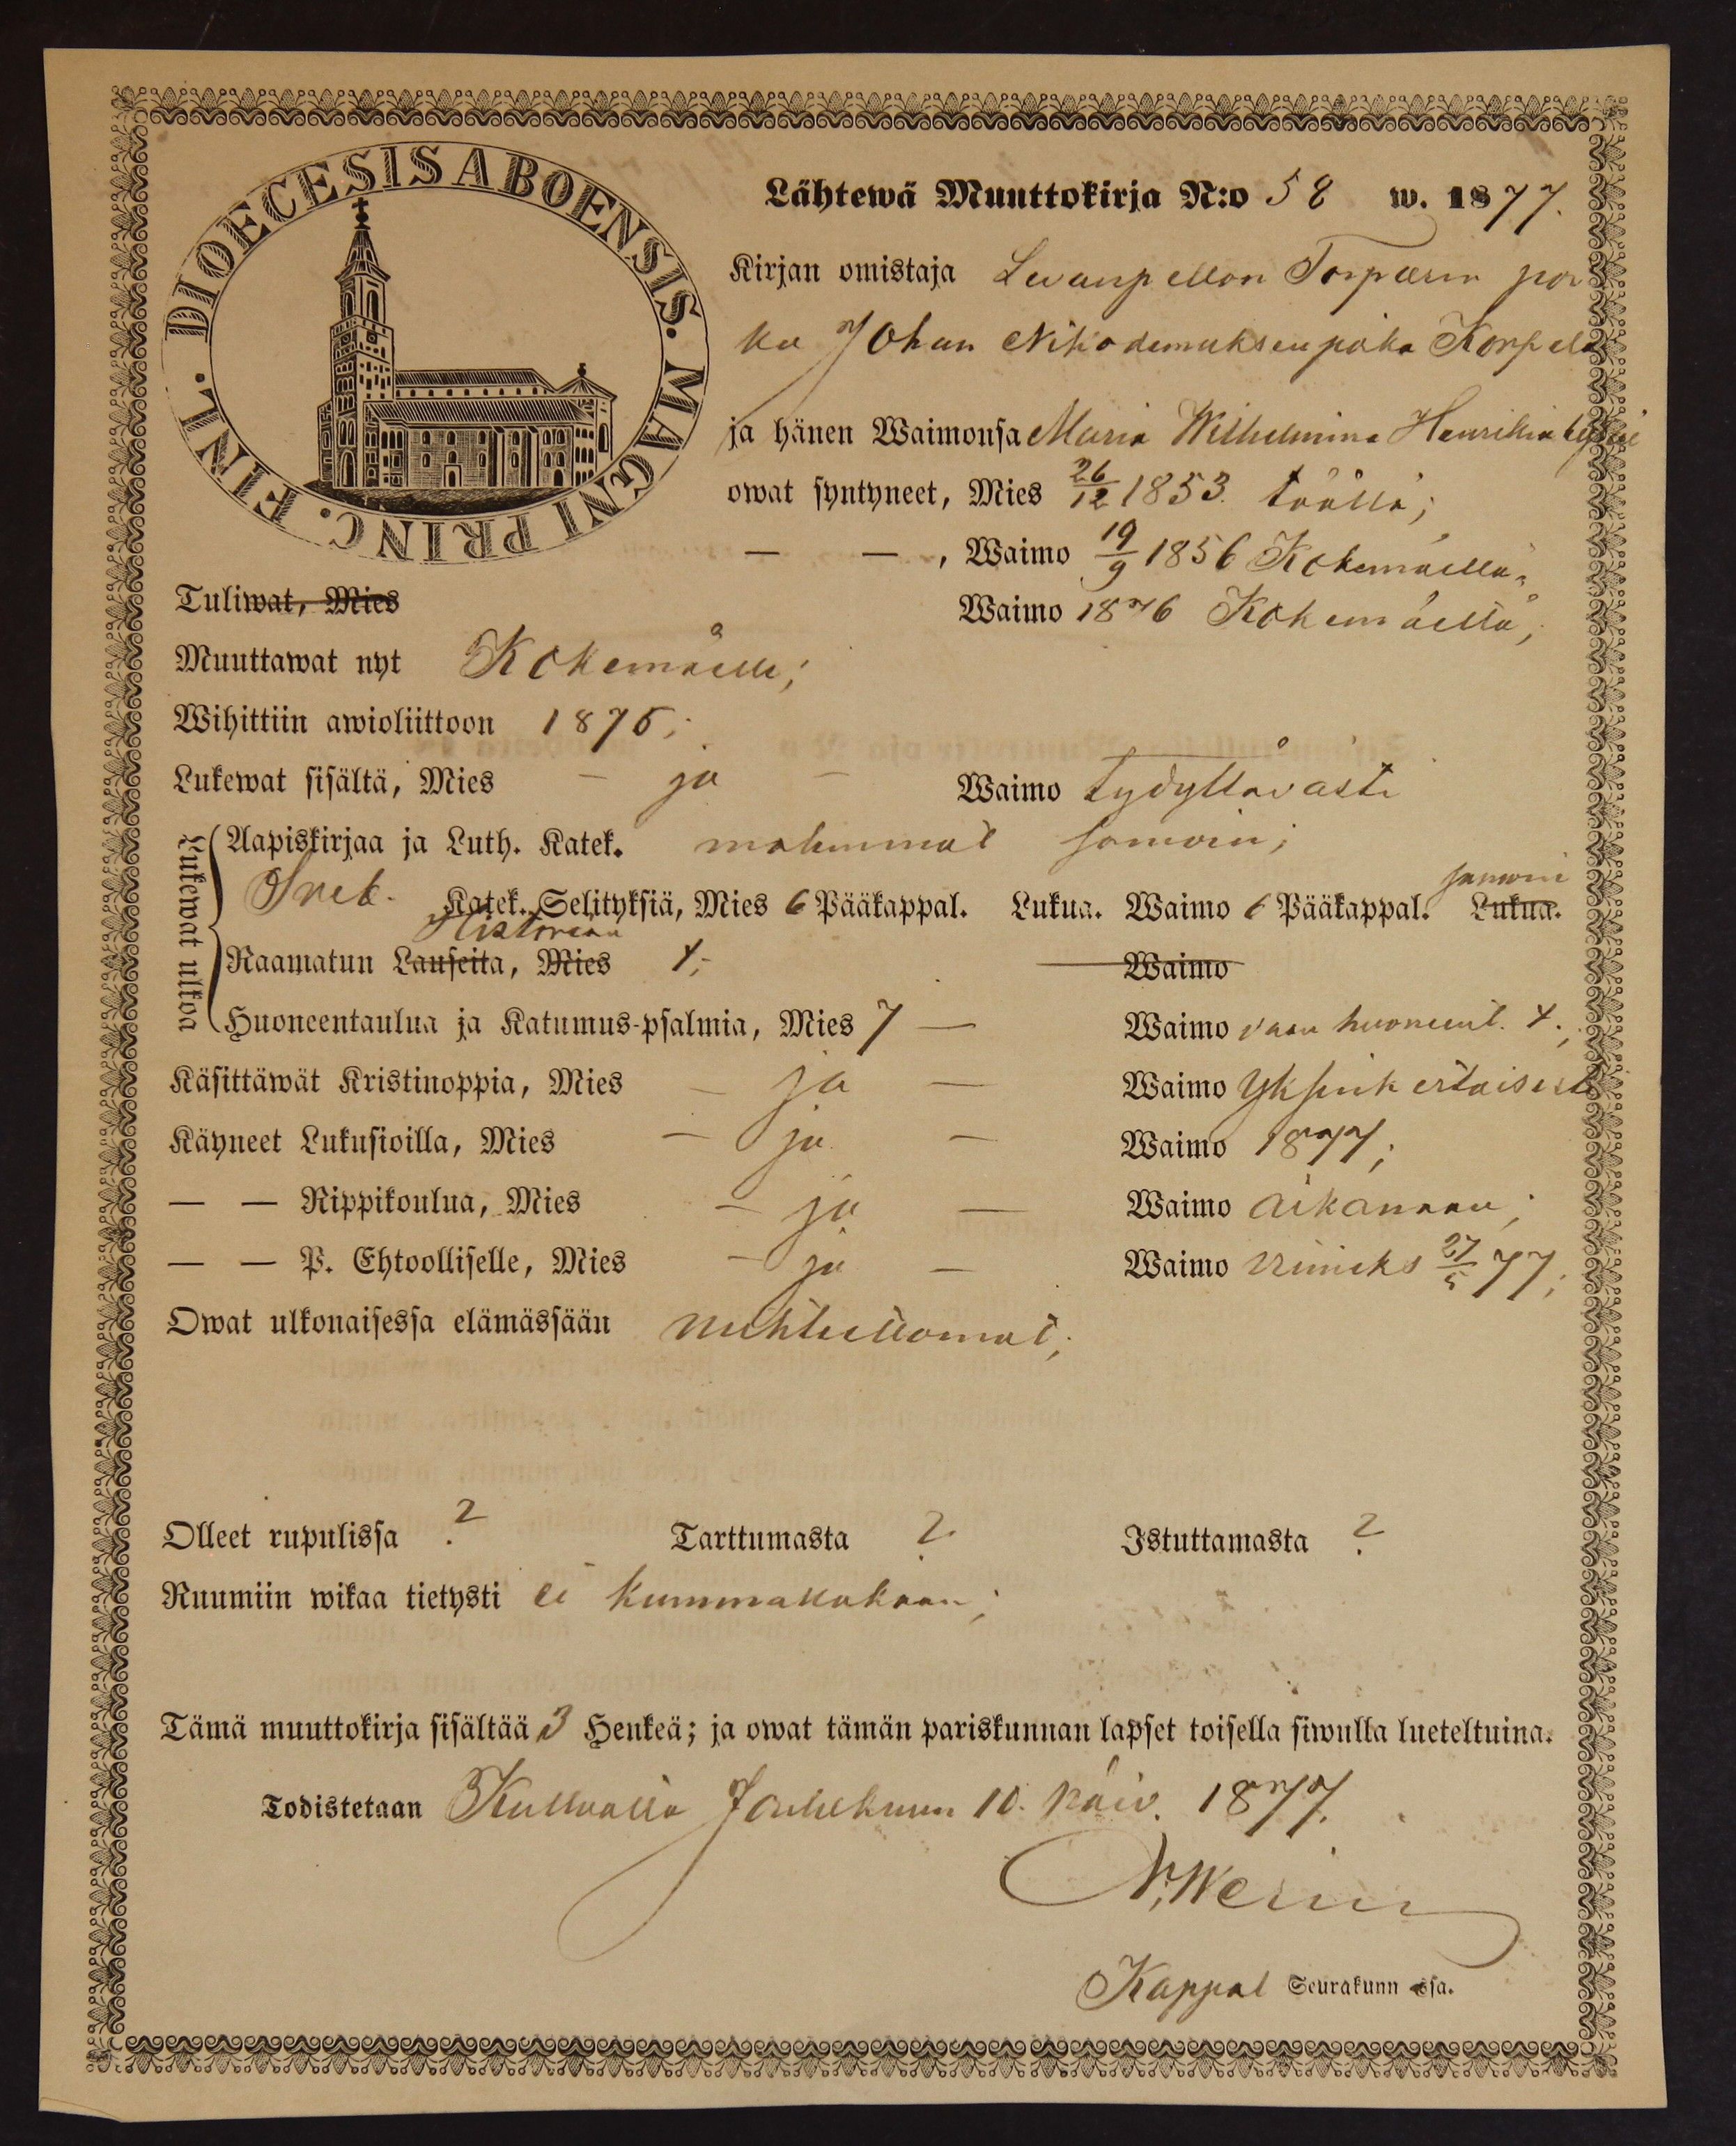 DIOECESIS ABOENSIS. MAGNI PRINC. FINL.
Lähtewä Muuttokirja N:o 58 w. 1877.
Kirjan omistaja Levanpellon Torpparin poi
ka Johan Nikodemuksenpoika Korpela
ja hänen Waimonsa Maria Wilhelmina Henrikin
owat syntyneet, Mies 26/12 1853. täällä;
— — , Waimo 19/9 1856 Kokemäellä;
Tuliwat, Mies Waimo 1876 Kokemäeltä;
Muuttawat nyt Kokemäelle;
Wihittiin awioliittoon 1876;
Lukewat sisältä, Mies – ja – Waimo tydyttävästi
Lukewat ulkoa
Aapiskirjaa ja Luth. Katek. molemmat samoin;
samoin
Sveb. Katek. Selityksiä, Mies 6 Pääkappal. Lukua. Waimo 6 Pääkappal. Lukua.
Historiaa
Raamatun Lauseita, Mies Waimo
Huoneentaulua ja Katumus-psalmia, Mies 7 — Waimo vaan huoneent.
Käsittäwät Kristinoppia, Mies – ja — Waimo Yksinkertaisesti
Käyneet Lukusioilla, Mies – ja — Waimo 1877;
— — Rippikoulua, Mies – ja — Waimo aikanaan;
— — P. Ehtoolliselle, Mies – ja — Waimo viimeks 27/5 77;
Owat ulkonaisessa elämässään nuhteettomat;
Olleet rupulissa ? Tarttumasta ? Istuttamasta ?
Ruumiin wikaa tietysti ei kummallakaan;
Tämä muuttokirja sisältää 3 Henkeä; ja owat tämän pariskunnan lapset toisella siwulla lueteltuina.
Todistetaan Kullaalla Joulukuun 10. päiv. 1877.
Kappal Seurakunn sa.